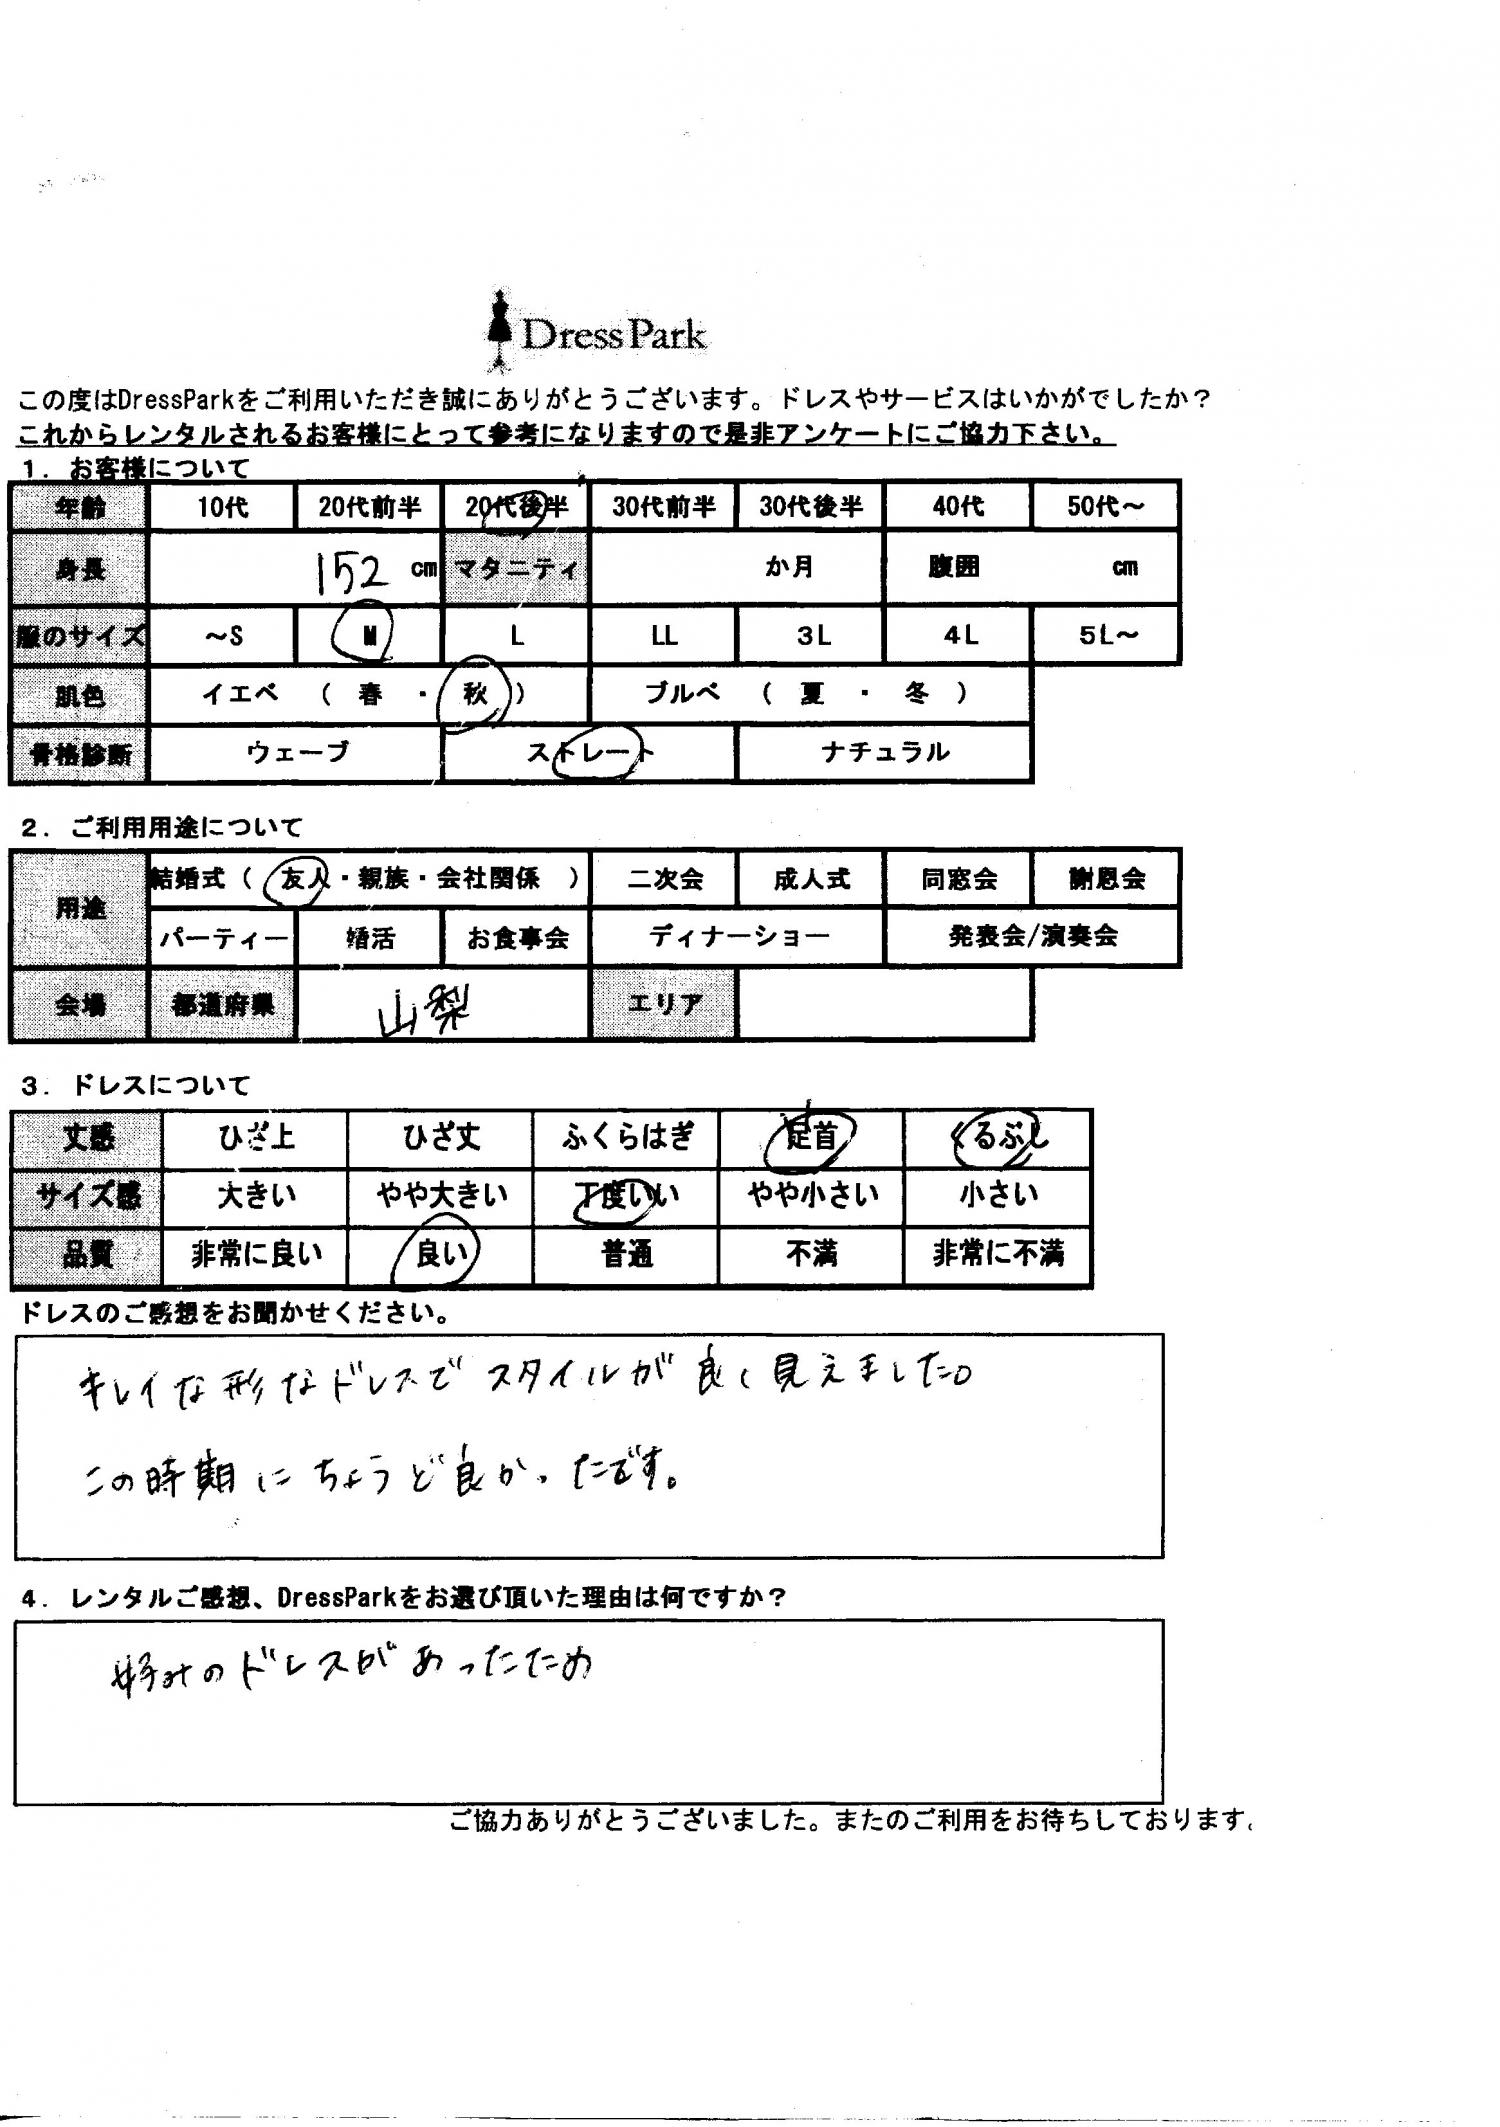 DressPark
この度はDressParkをご利用いただき誠にありがとうございます。ドレスやサービスはいかがでしたか？
これからレンタルされるお客様にとって参考になりますので是非アンケートにご協力下さい。
１．お客様について
年齢 10代 20代前半 20代後半 30代前半 30代後半 40代 50代～
身長 152 cm マタニティ か月 腹囲 cm
服のサイズ ～S M L LL 3L 4L 5L～
肌色 イエベ （ 春 ・ 秋 ） ブルベ （ 夏 ・ 冬 ）
骨格診断 ウェーブ ストレート ナチュラル
２．ご利用用途について
用途 結婚式（ 友人・親族・会社関係 ） 二次会 成人式 同窓会 謝恩会
パーティー 婚活 お食事会 ディナーショー 発表会/演奏会
会場 都道府県 山梨 エリア
３．ドレスについて
丈感 ひざ上 ひざ丈 ふくらはぎ 足首 くるぶし
サイズ感 大きい やや大きい 丁度いい やや小さい 小さい
品質 非常に良い 良い 普通 不満 非常に不満
ドレスのご感想をお聞かせください。
キレイな形なドレスでスタイルが良く見えました。
この時期にちょうど良かったです。
４．レンタルご感想、DressParkをお選び頂いた理由は何ですか？
好みのドレスがあったため
ご協力ありがとうございました。またのご利用をお待ちしております。